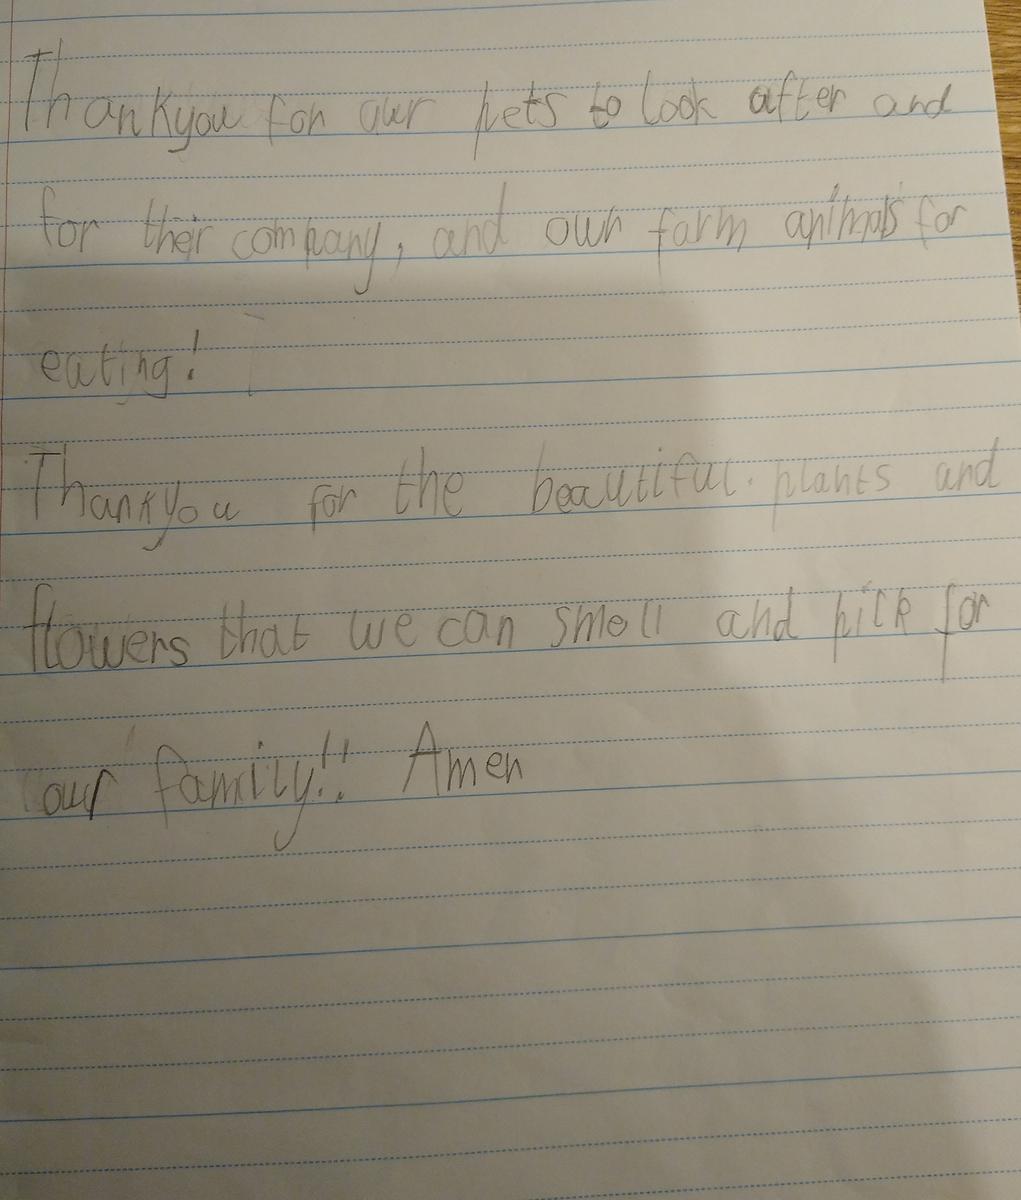 Thankyou for our pets to look after and
for their company, and our farm animals for
eating!
Thankyou for the beautiful. plants and
flowers that we can smell and pick for
our family!! Amen